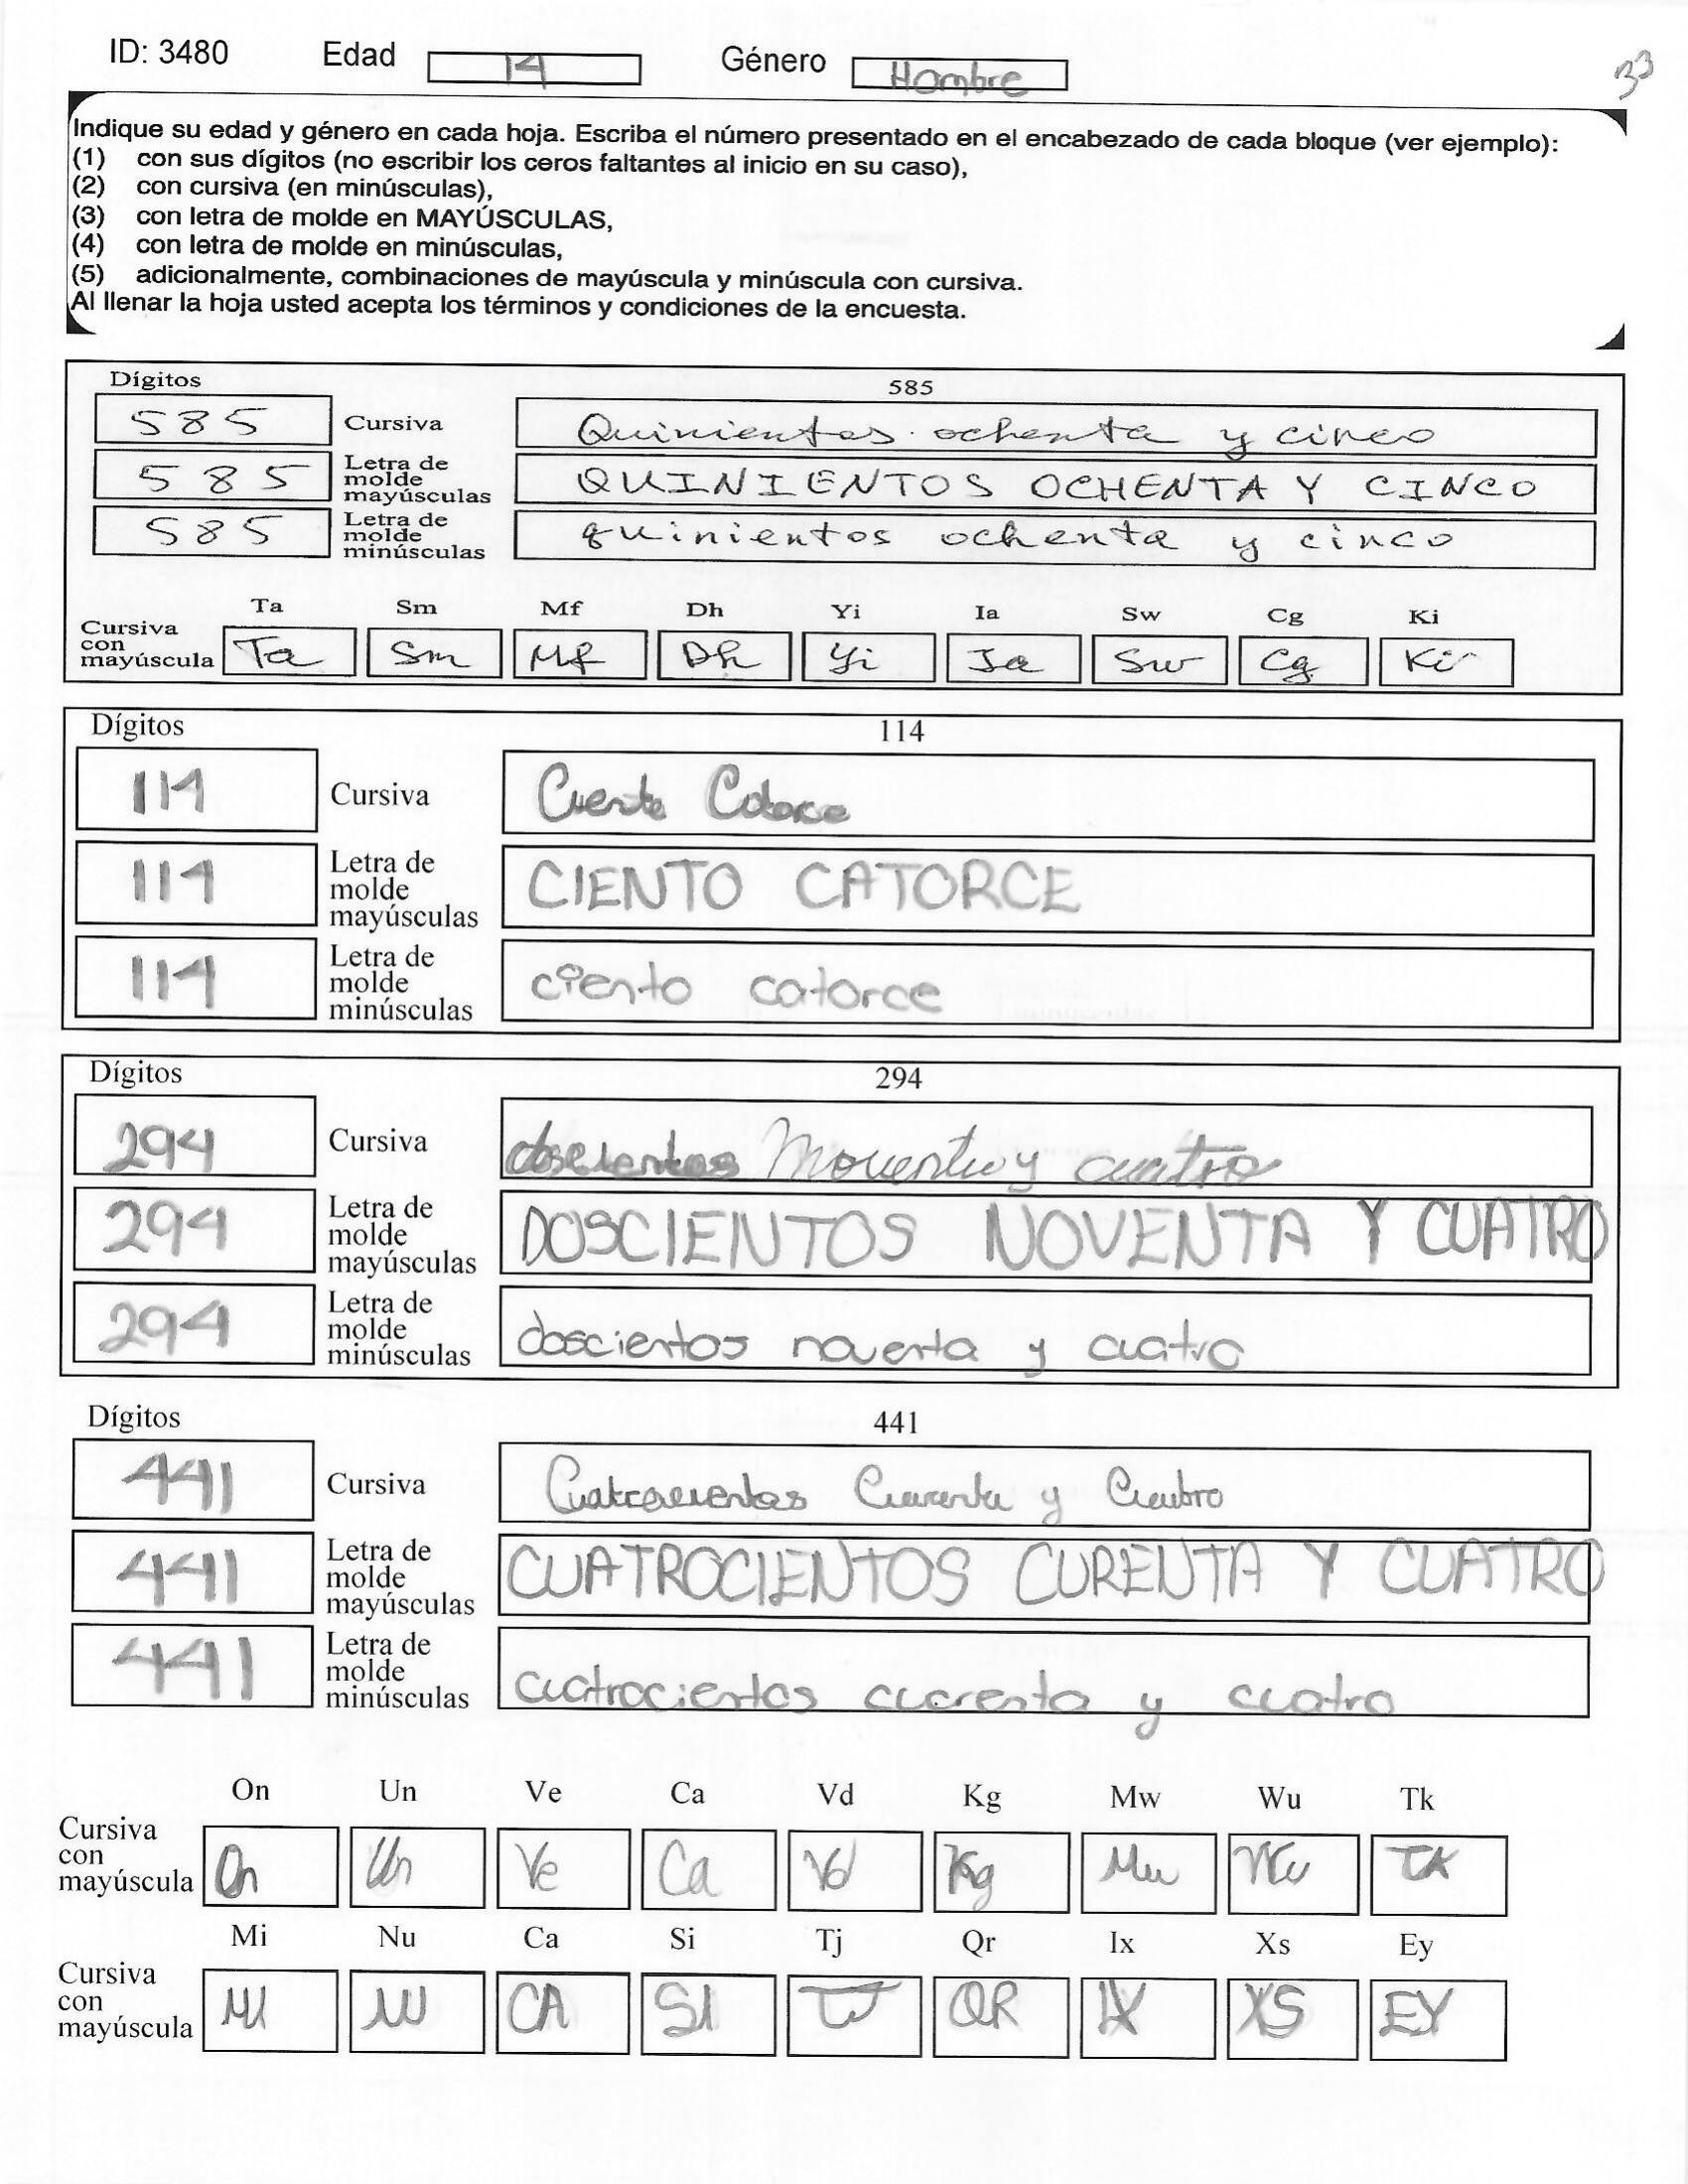 ID: 3480 Edad 14 Género Hombre 33
Indique su edad y género en cada hoja. Escriba el número presentado en el encabezado de cada bloque (ver ejemplo):
(1) con sus dígitos (no escribir los ceros faltantes al inicio en su caso),
(2) con cursiva (en minúsculas),
(3) con letra de molde en MAYÚSCULAS,
(4) con letra de molde en minúsculas,
(5) adicionalmente, combinaciones de mayúscula y minúscula con cursiva.
Al llenar la hoja usted acepta los términos y condiciones de la encuesta.
Dígitos 585
585 Cursiva Quinientos ochenta y cinco
585 Letra de molde mayúsculas QUINIENTOS OCHENTA Y CINCO
585 Letra de molde minúsculas quinientos ochenta y cinco
Ta Sm Mf Dh Yi Ia Sw Cg Ki
Cursiva con mayúscula Ta Sm Mf Dh Yi Ia Sw Cg Ki
Dígitos 114
114 Cursiva Ciento Catorce
114 Letra de molde mayúsculas CIENTO CATORCE
114 Letra de molde minúsculas ciento catorce
Dígitos 294
294 Cursiva doscientos Noventa y cuatro
294 Letra de molde mayúsculas DOSCIENTOS NOVENTA Y CUATRO
294 Letra de molde minúsculas doscientos noventa y cuatro
Dígitos 441
441 Cursiva Cuatrocientos Cuarenta y Cuatro
441 Letra de molde mayúsculas CUATROCIENTOS CURENTA Y CUATRO
441 Letra de molde minúsculas cuatrocientos cuarenta y cuatro
On Un Ve Ca Vd Kg Mw Wu Tk
Cursiva con mayúscula On Un Ve Ca Vd Kg Mw Wu TK
Mi Nu Ca Si Tj Qr Ix Xs Ey
Cursiva con mayúscula MI NU CA SI TJ QR IX XS EY